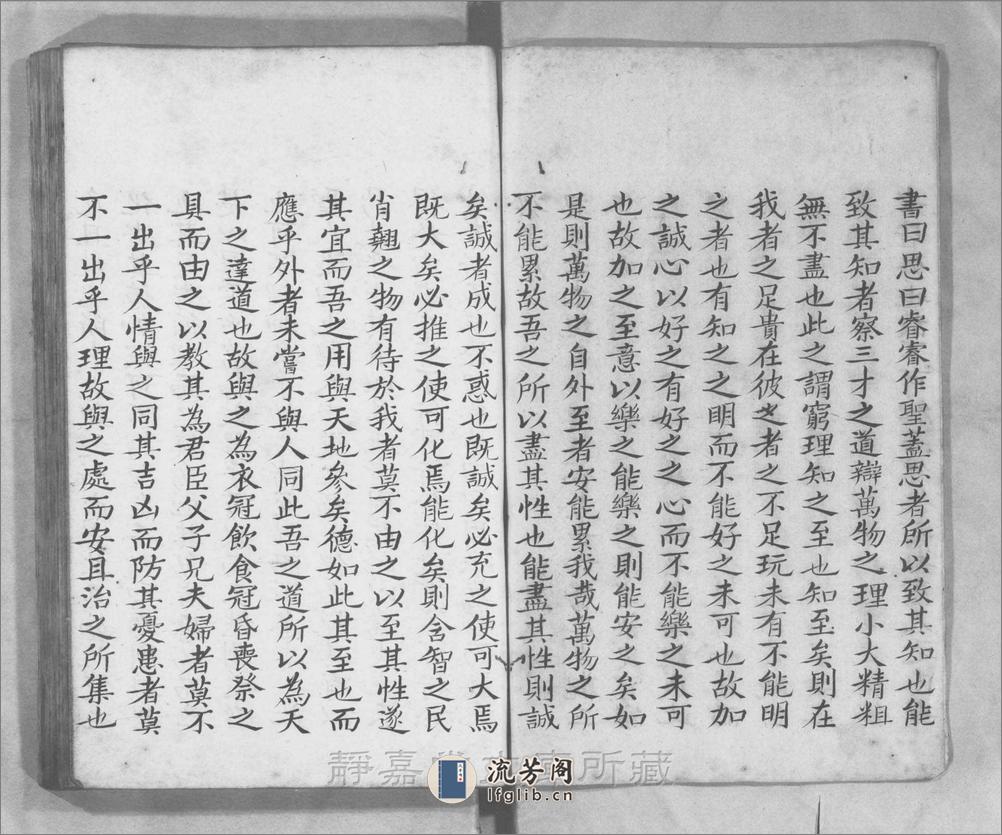 書曰思曰睿睿作聖蓋思者所以致其知也能
致其知者察三才之道辯萬物之理小大精粗
無不盡也此之謂窮理知之至也知至矣則在
我者之足貴在彼之者之不足玩未有不能明
之者也有知之之明而不能好之未可也故加
之誠心以好之有好之之心而不能樂之未可
也故加之至意以樂之能樂之則能安之矣如
是則萬物之自外至者安能累我哉萬物之所
不能累故吾之所以盡其性也能盡其性則誠
矣誠者成也不惑也既誠矣必充之使可大焉
既大矣必推之使可化焉能化矣則含智之民
肖翹之物有待於我者莫不由之以至其性遂
其宜而吾之用與天地參矣德如此其至也而
應乎外者未嘗不與人同此吾之道所以為天
下之達道也故與之為衣冠飲食冠昏喪祭之
具而由之以教其為君臣父子兄夫婦者莫不
一出乎人情與之同其吉凶而防其憂患者莫
不一出乎人理故與之處而安且治之所集也
靜嘉堂文庫所藏
流芳阁
lfglib.cn